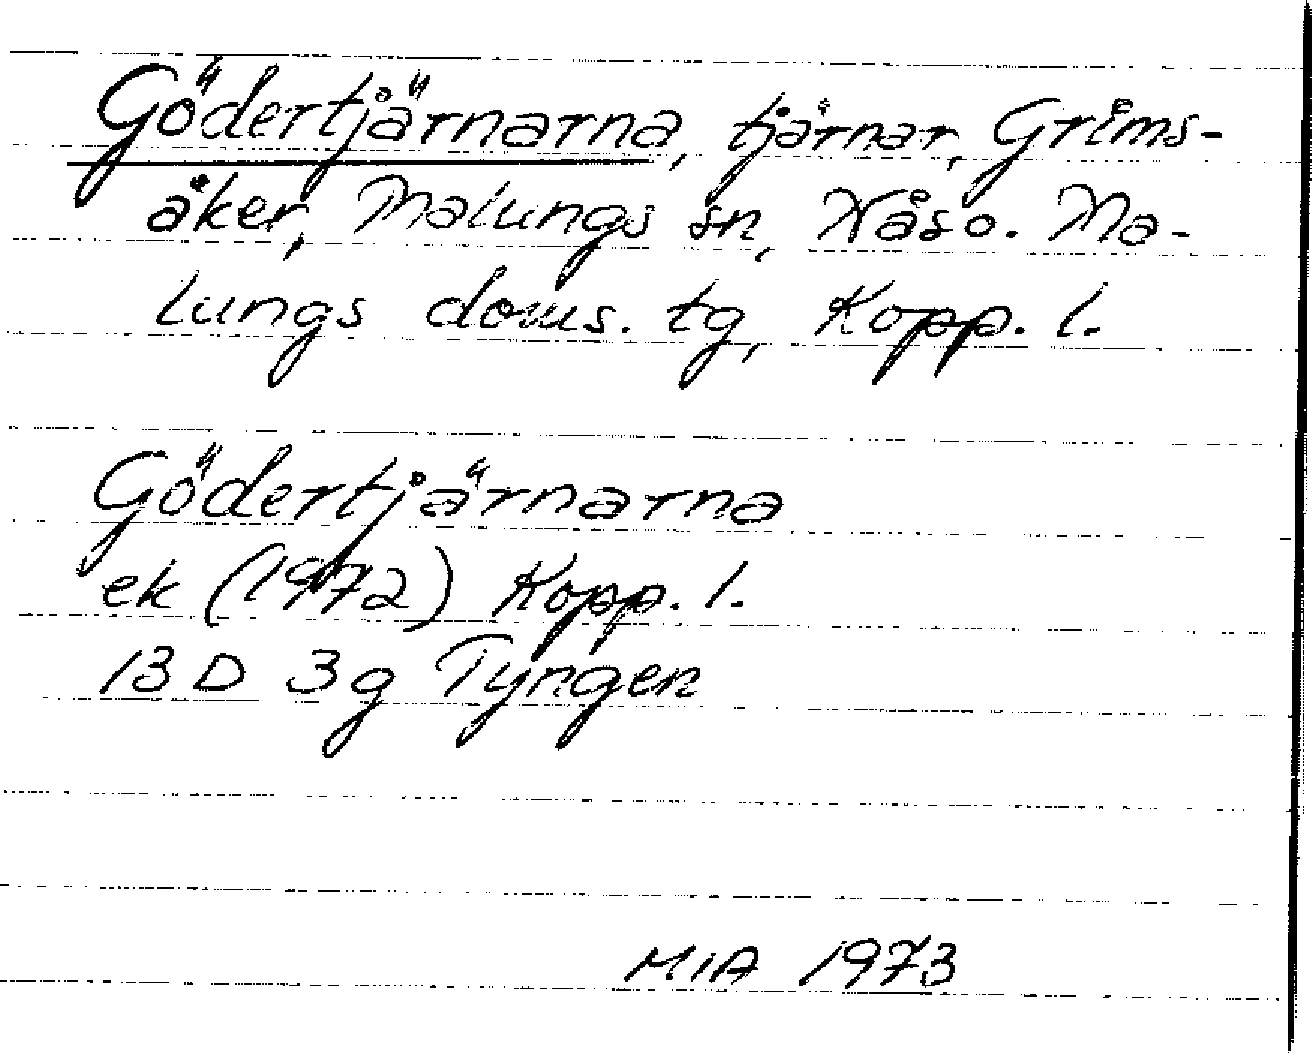 Gödertjärnarna, tjärnar, Grims-
åker, Malungs sn, Nås o. Ma-
lungs doms. tg, Kopp. l.
Gödertjärnarna
ek (1972) Kopp. l.
13 D 3g Tyngen
MIA 1973